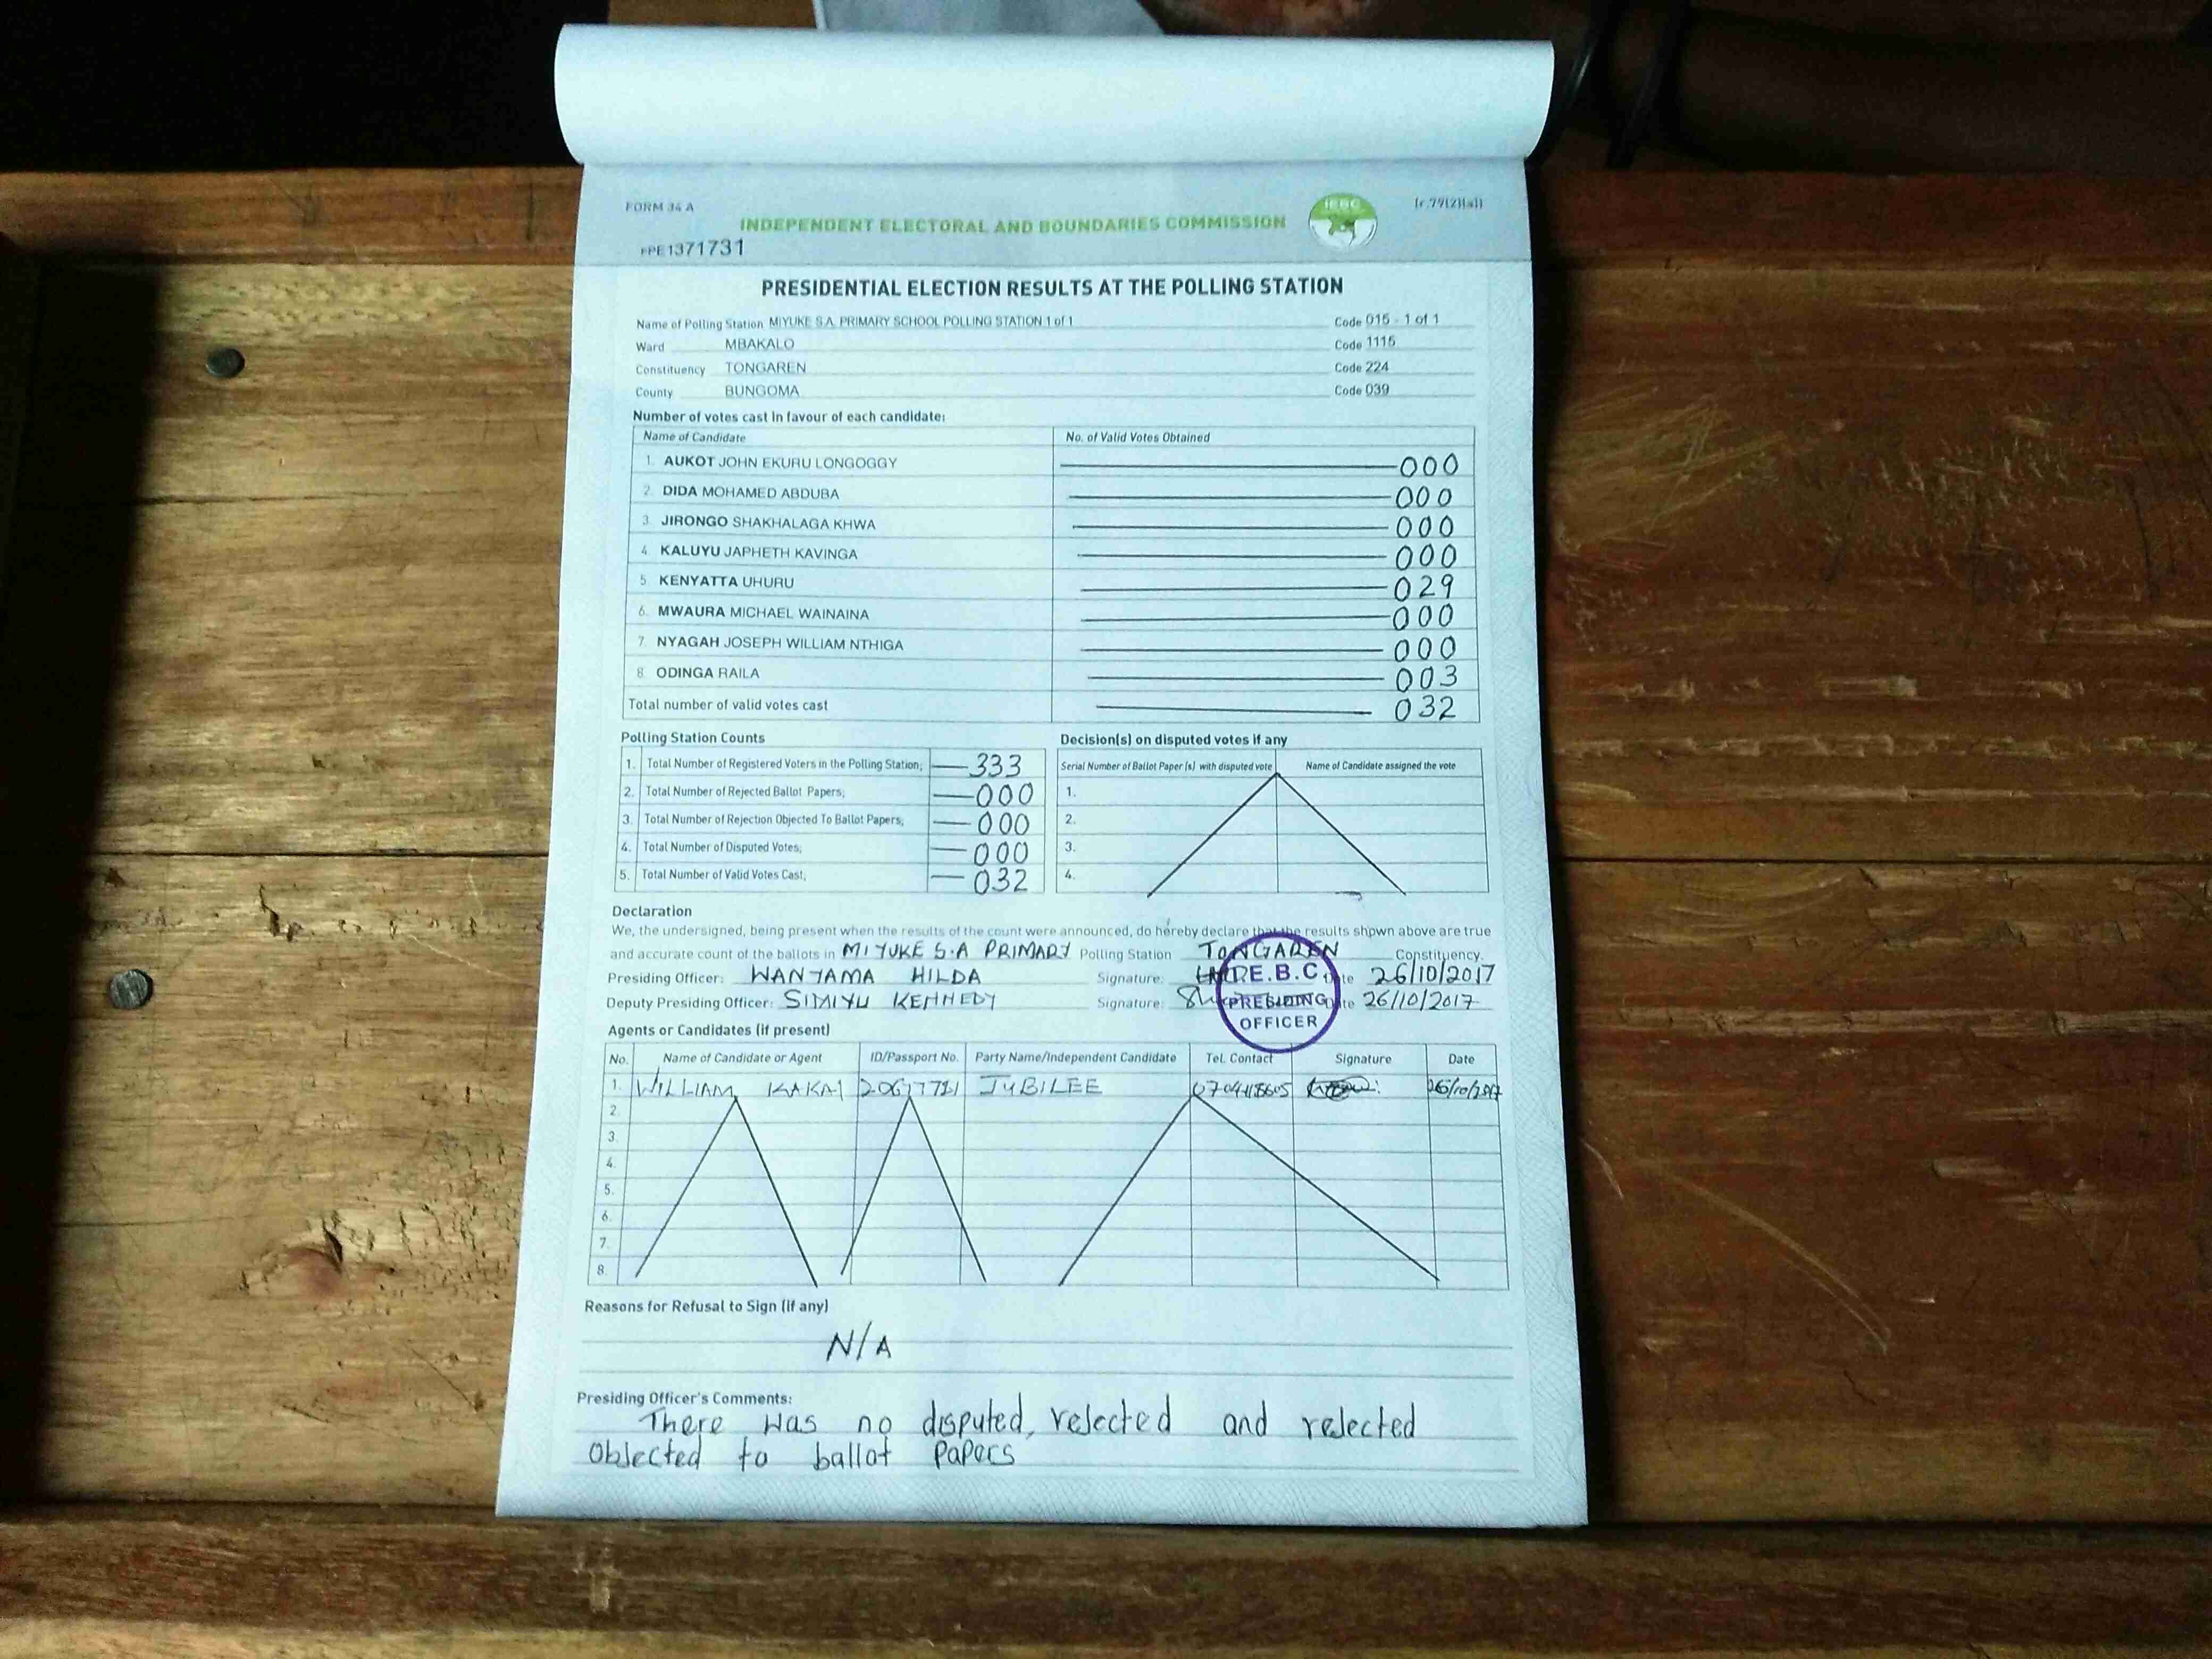 FORM 34 A
(r.79(2)(a))
INDEPENDENT ELECTORAL AND BOUNDARIES COMMISSION
IEBC
PPE1371731
PRESIDENTIAL ELECTION RESULTS AT THE POLLING STATION
Name of Polling Station MIYUKE S.A. PRIMARY SCHOOL POLLING STATION 1 of 1 Code 015 - 1 of 1
Ward MBAKALO Code 1115
Constituency TONGAREN Code 224
County BUNGOMA Code 039
Number of votes cast in favour of each candidate:
Name of Candidate No. of Valid Votes Obtained
1. AUKOT JOHN EKURU LONGOGGY 000
2. DIDA MOHAMED ABDUBA 000
3. JIRONGO SHAKHALAGA KHWA 000
4. KALUYU JAPHETH KAVINGA 000
5. KENYATTA UHURU 029
6. MWAURA MICHAEL WAINAINA 000
7. NYAGAH JOSEPH WILLIAM NTHIGA 000
8. ODINGA RAILA 003
Total number of valid votes cast 032
Polling Station Counts
1. Total Number of Registered Voters in the Polling Station; 333
2. Total Number of Rejected Ballot Papers; 000
3. Total Number of Rejection Objected To Ballot Papers; 000
4. Total Number of Disputed Votes; 000
5. Total Number of Valid Votes Cast; 032
Decision(s) on disputed votes if any
Serial Number of Ballot Paper (s) with disputed vote Name of Candidate assigned the vote
1.
2.
3.
4.
Declaration
We, the undersigned, being present when the results of the count were announced, do hereby declare that the results shown above are true
and accurate count of the ballots in MIYUKE S.A PRIMARY Polling Station TONGAREN Constituency.
Presiding Officer: WANYAMA HILDA Signature: Date 26/10/2017
Deputy Presiding Officer: SIMIYU KENNEDY Signature: Date 26/10/2017
I.E.B.C
PRESIDING
OFFICER
Agents or Candidates (if present)
No. Name of Candidate or Agent ID/Passport No. Party Name/Independent Candidate Tel. Contact Signature Date
1. WILLIAM KAKAI JUBILEE 26/10/2017
2.
3.
4.
5.
6.
7.
8.
Reasons for Refusal to Sign (if any)
N/A
Presiding Officer's Comments:
There was no disputed, rejected and rejected
objected to ballot papers